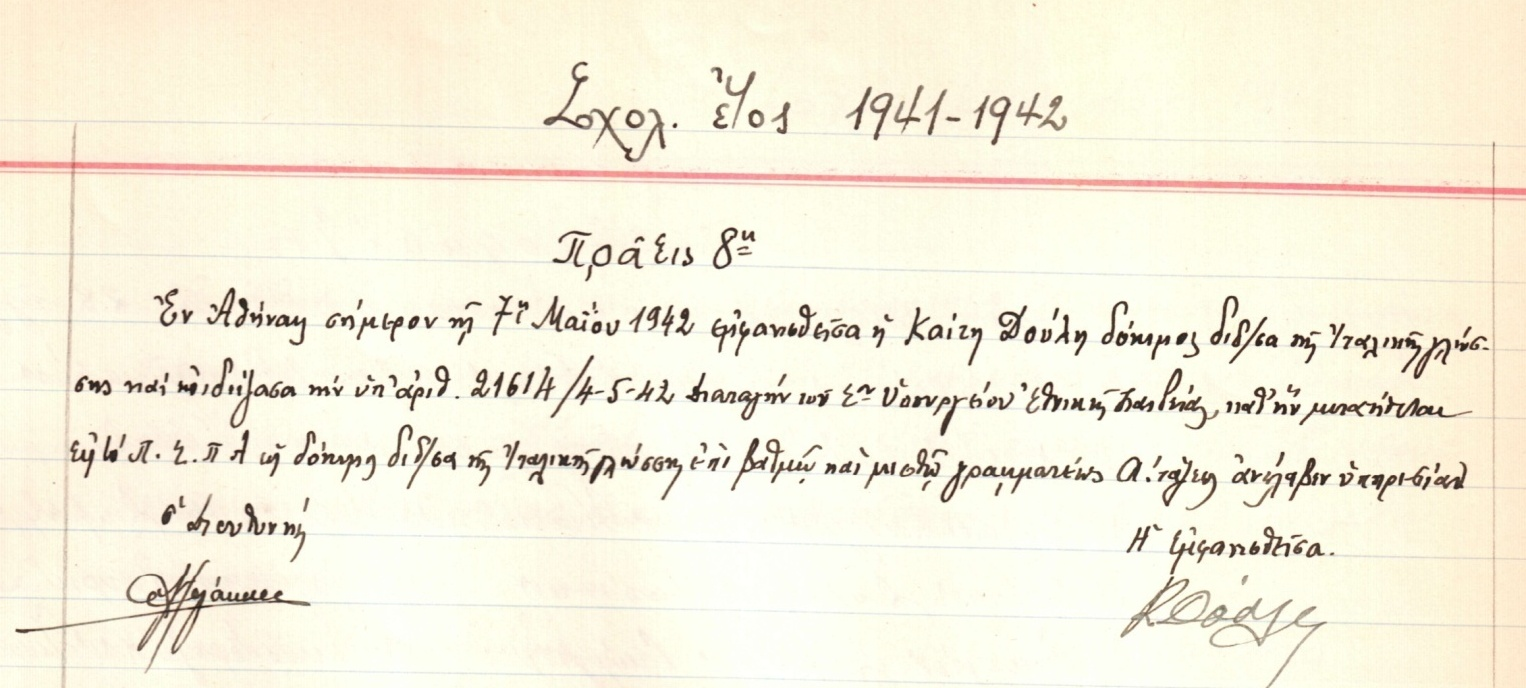 Σχολ. ἔτος 1941-1942
Πρᾶξις 8η
Ἐν Ἀθήναις σήμερον τῇ 7ῃ Μαΐου 1942 ἐμφανισθεῖσα ἡ Καίτη Δούλη δόκιμος διδ/σα τῆς Ἰταλικῆς γλώσ-
σης καὶ ἐπιδείξασα τὴν ὑπ' ἀριθ. 21614/4-5-42 διαταγὴν τοῦ Σοῦ Ὑπουργείου Ἐθνικῆς Παιδείας, καθ' ἣν μετατίθεται
εἰς τὸ Π. Σ. Π Α ὡς δόκιμος διδ/σα τῆς Ἰταλικῆς γλώσσης ἐπὶ βαθμῷ καὶ μισθῷ γραμματέως Α! τάξεως ἀνέλαβεν ὑπηρεσίαν
Ὁ Διευθυντής
Ἡ ἐμφανισθεῖσα.